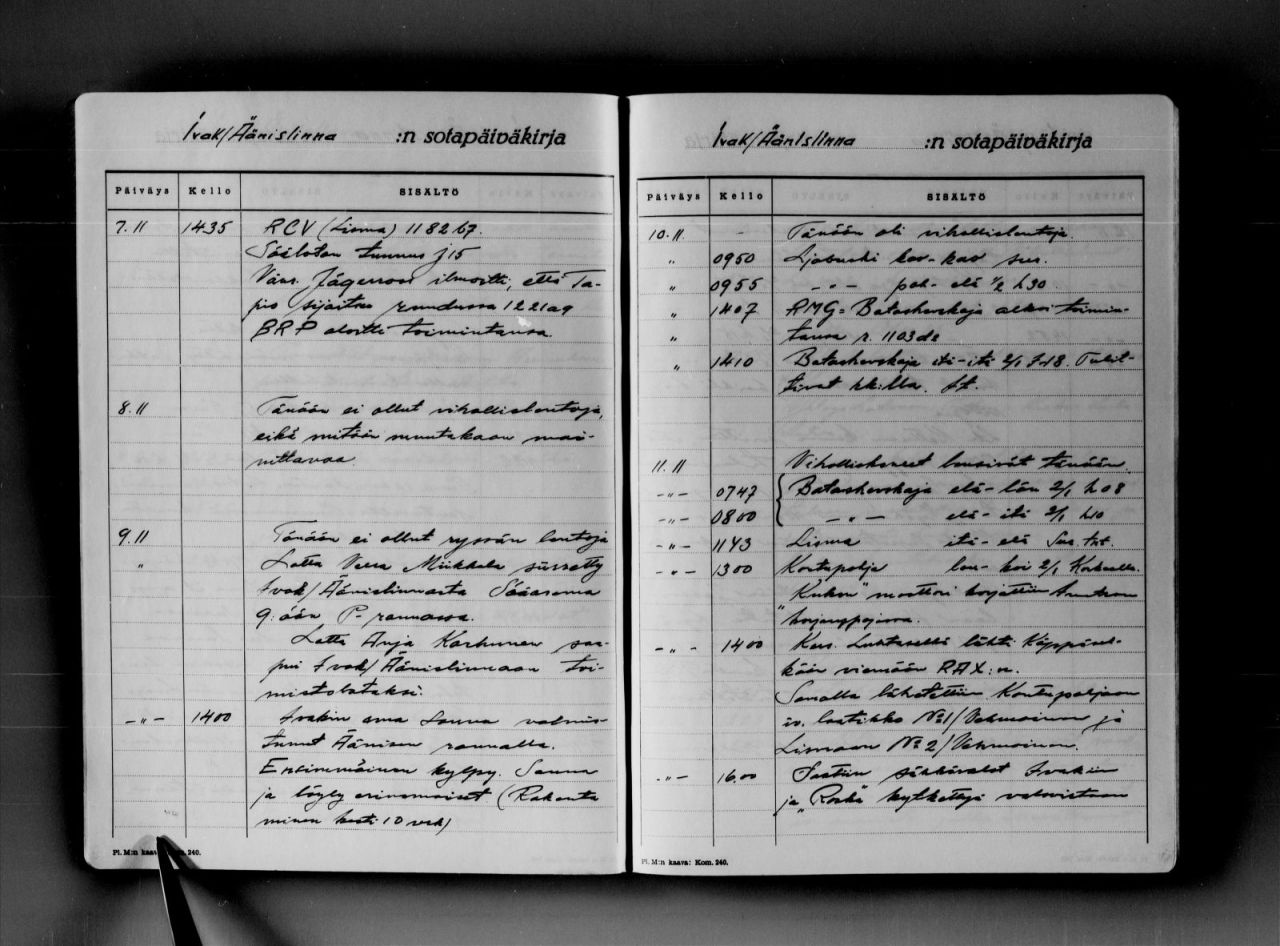 Ivak/Äänislinna :n sotapäiväkirja
Päiväys Kello SISÄLTÖ
7.11 1435 RCV (Lisma) 1182 b7.
Sääloton tunnus J15
Vänr. Jägerroos ilmoitti, että Ta-
pio sijaitsee ruudussa 1221a9
BRP aloitti toimintansa.
8.11 Tänään ei ollut vihollislentoja,
eikä mitään muutakaan mai-
nittavaa.
9.11 Tänään ei ollut ryssän lentoja
" Lotta Veera Miikkola siirretty
Ivak/Äänislinnasta Sääasema
9:ään P-rannassa.
Lotta Anja Korhonen saa-
pui Ivak/Äänislinnaan toi-
mistolotaksi.
-"- 1400 Ivakin oma sauna valmis-
tunut Äänisen rannalla.
Ensimmäinen kylpy. Sauna
ja löyly erinomaiset (Rakenta
minen kesti 10 vrk)
Pl. M:n kaava: Kom. 240.
Ivak/Äänislinna :n sotapäiväkirja
Päiväys Kello SISÄLTÖ
10.11 - Tänään oli vihollislentoja.
" 0950 Ljabuski kov-kov sus.
" 0955 -"- poh-elä ½ h30
" 1407 RMG= Batashevskaja alkoi toimin-
" tansa r. 1103d2
" 1410 Batashevskaja itä-itä 2/1 J-18. Tulit-
tivat kk:lla.
11.11 Viholliskoneet lensivät tänään.
-"- 0747 Batashevskaja elä-län 2/1 h08
-"- 0800 -"- elä-itä 2/1 h10
-"- 1143 Lisma itä-elä Sus. tnt.
-"- 1300 Kontupohja lou-koi 2/1 Korkealla.
"Kukon" moottori korjattiin Aunuksen
korjauspajassa.
-"- 1400 Kers. Luhtasella lähti Käppäsel-
kään viemään RAX:n.
Samalla lähetettiin Kontupohjaan
is. laatikko No1/Vehmainen ja
Lismaan No 2/Vehmainen.
-"- 16.00 Saatiin sähkövalot Ivakiin
ja "Roska" kytkettyä valovirtaan
Pl. M:n kaava: Kom. 240.